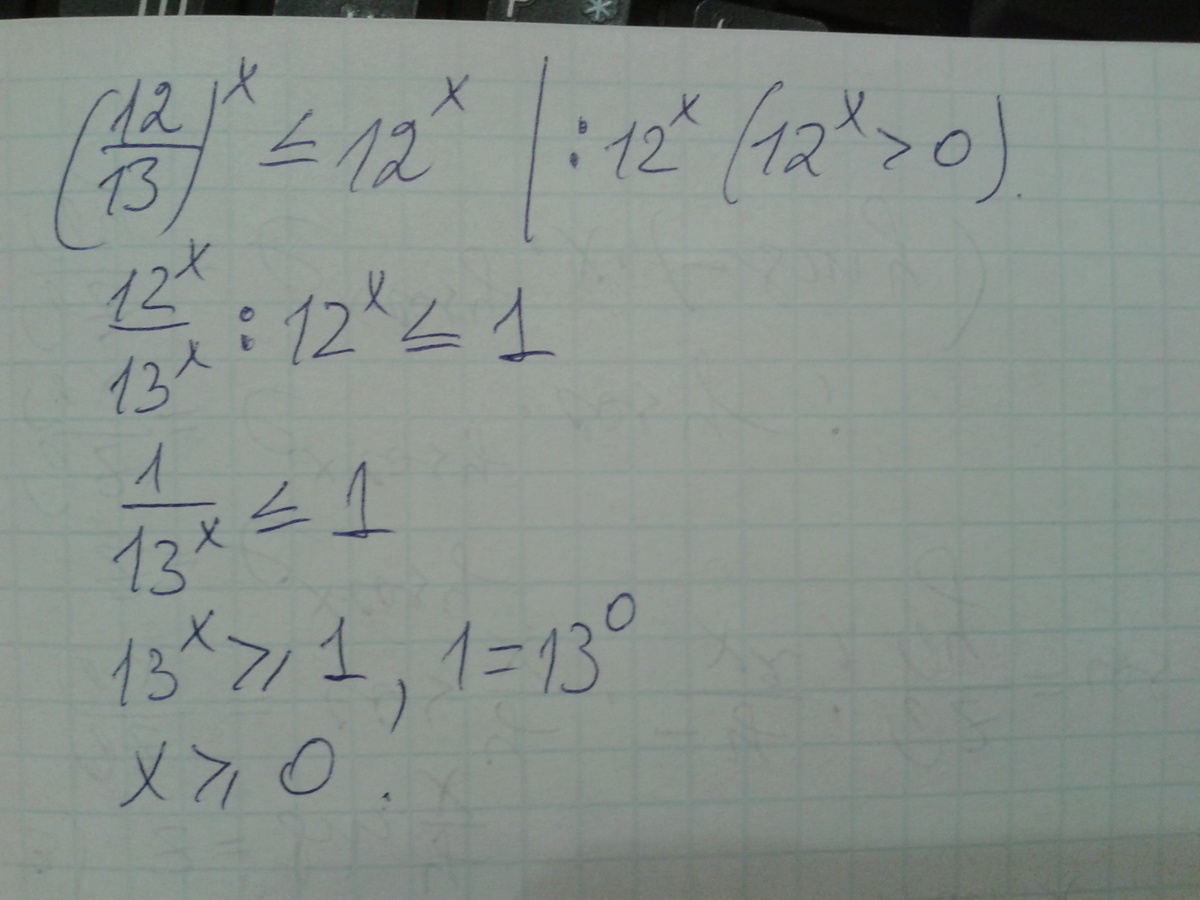 (12/13)^x ≤ 12^x | : 12^x (12^x > 0).
12^x/13^x : 12^x ≤ 1
1/13^x ≤ 1
13^x ⩾ 1, 1 = 13^0
x ⩾ 0.